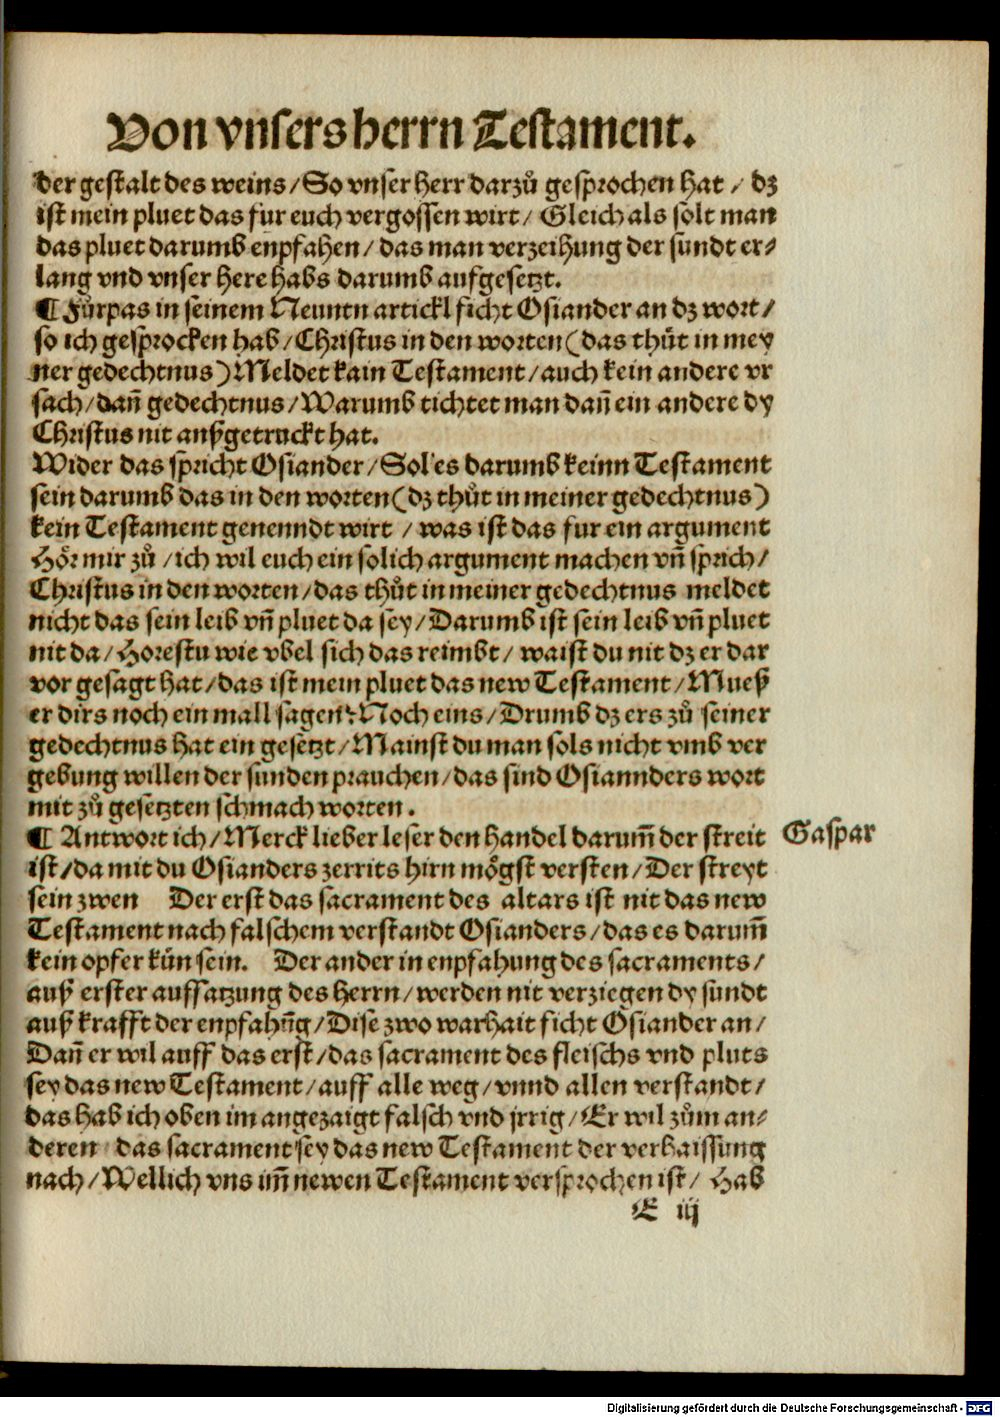 Von vnsers herrn Testament.
der gestalt des weins/So vnser herr darzů gesprochen hat / dz
ist mein pluet das fur euch vergossen wirt/ Gleich als solt man
das pluet darumb enpfahen/das man verzeihung der sundt er⸗
lang vnd vnser here habs darumb aufgesetzt.
¶ Fůrpas in seinem Neuntn artickl ficht Osiander an dz wort/
so ich gesprocken hab/Christus in den worten(das thůt in mey
ner gedechtnus)Meldet kain Testament/auch kein andere vr
sach/dañ gedechtnus/Warumb tichtet man dañ ein andere dy
Christus nit außgetruckt hat.
Wider das spricht Osiander/Sol es darumb keinn Testament
sein darumb das in den worten(dz thůt in meiner gedechtnus)
kein Testament genenndt wirt / was ist das fur ein argument
Hör mir zů /ich wil euch ein solich argument machen vñ sprich/
Christus in den worten/das thůt in meiner gedechtnus meldet
nicht das sein leib vñ pluet da sey/Darumb ist sein leib vñ pluet
nit da/Horestu wie vbel sich das reimbt/waist du nit dz er dar
vor gesagt hat/das ist mein pluet das new Testament/Mueß
er dirs noch ein mall sagen? Noch eins/Drumb dz ers zů seiner
gedechtnus hat ein gesetzt/Mainst du man sols nicht vmb ver
gebung willen der sunden prauchen/das sind Osiannders wort
mit zů gesetzten schmach worten.
¶ Antwort ich/Merck lieber leser den handel darum̄ der streit
Gaspar
ist/da mit du Osianders zerrits hirn mögst versten/Der streyt
sein zwen Der erst das sacrament des altars ist nit das new
Testament nach falschem verstandt Osianders/das es darum̄
kein opfer kün sein. Der ander in enpfahung des sacraments/
auß erster auffsatzung des herrn/werden nit verziegen dy sundt
auß krafft der enpfahūg/Dise zwo warhait ficht Osiander an/
Dañ er wil auff das erst/das sacrament des fleischs vnd pluts
sey das new Testament/auff alle weg/vnnd allen verstandt/
das hab ich oben im angezaigt falsch vnd jrrig/Er wil zům an⸗
deren das sacrament sey das new Testament der verhaissung
nach/Wellich vns im̄ newen Testament versprochen ist/ Hab
E iij
Digitalisierung gefördert durch die Deutsche Forschungsgemeinschaft - DFG